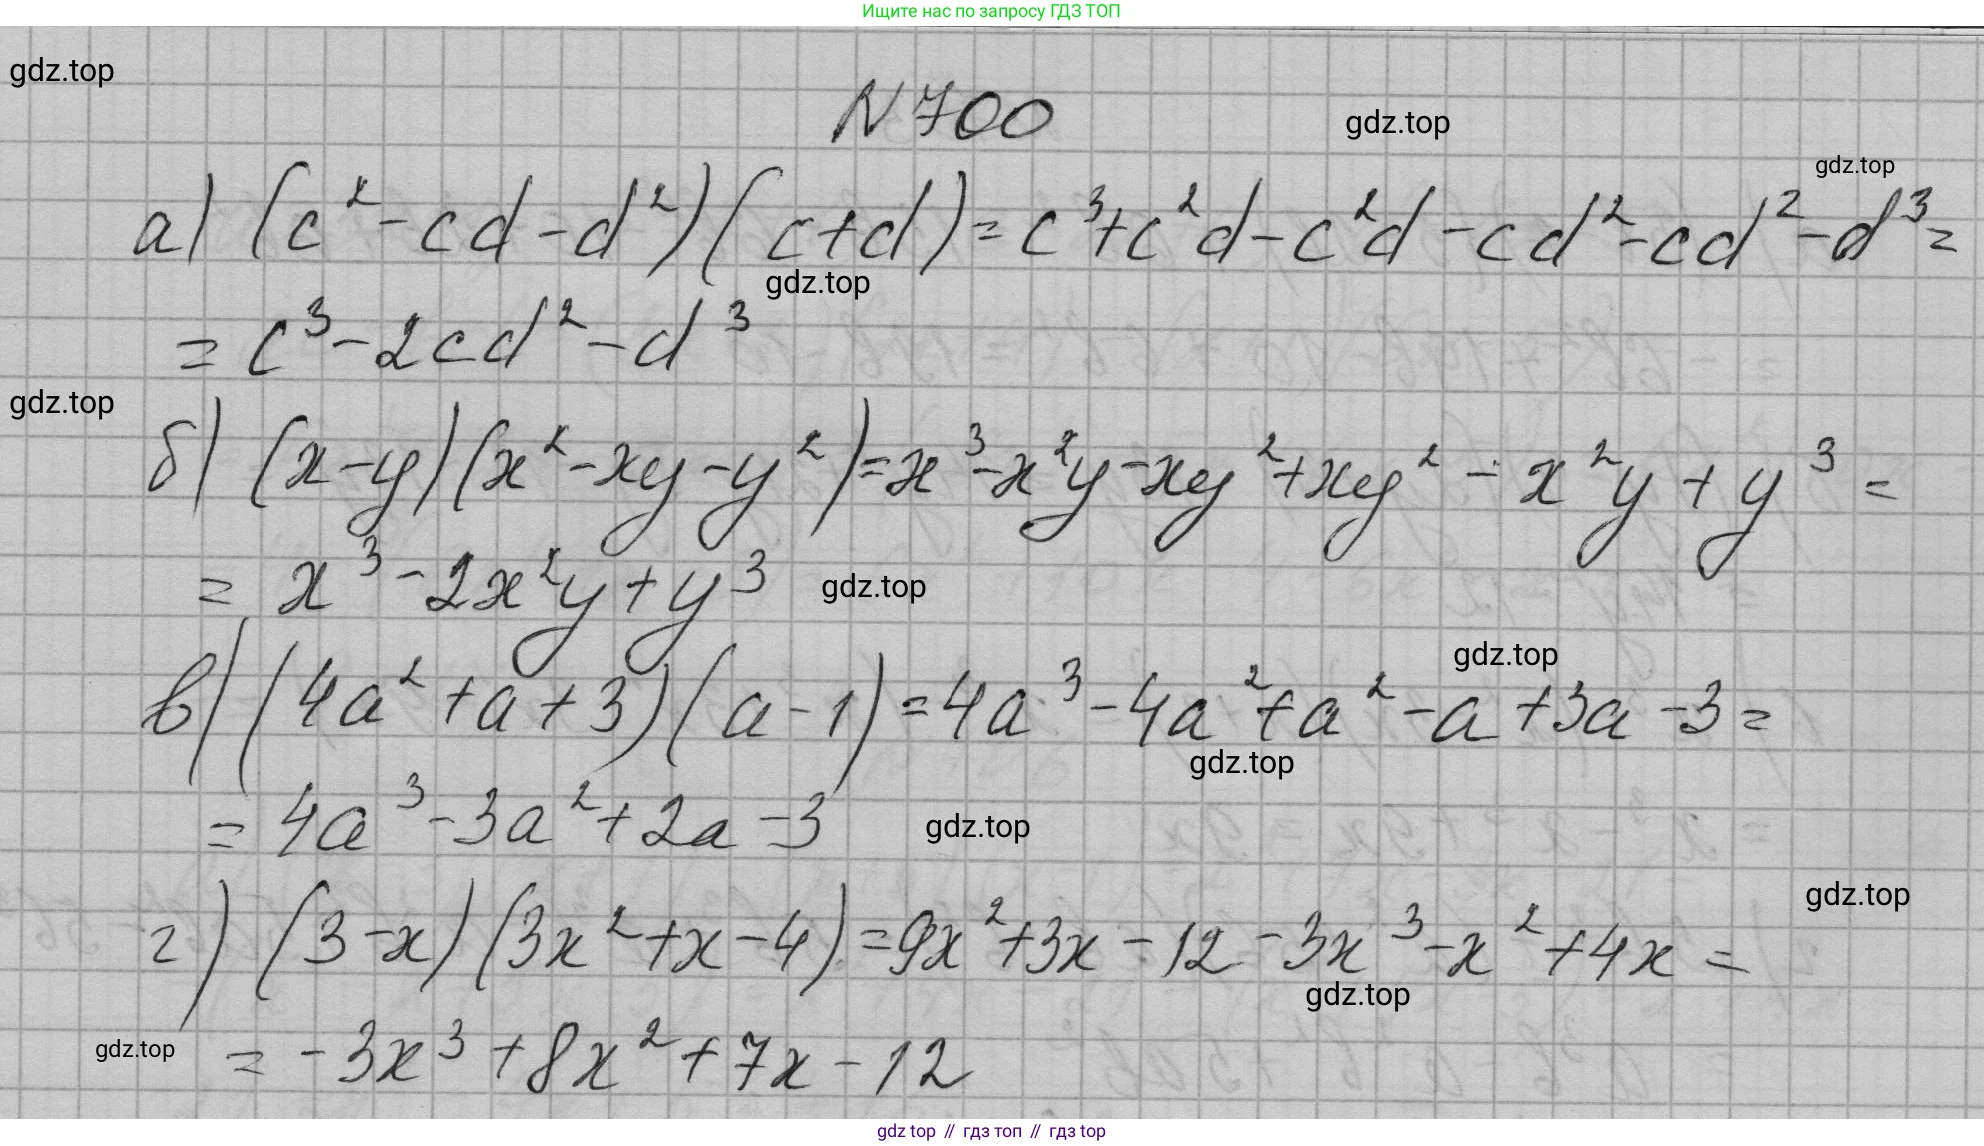 Ищите нас по запросу ГДЗ ТОП
gdz.top
N 700
gdz.top
gdz.top
а) (c² - cd - d²)(c + d) = c³ + c²d - c²d - cd² - cd² - d³ =
gdz.top
= c³ - 2cd² - d³
gdz.top
б) (x - y)(x² - xy - y²) = x³ - x²y - xy² + xy² - x²y + y³ =
= x³ - 2x²y + y³
gdz.top
gdz.top
в) (4a² + a + 3)(a - 1) = 4a³ - 4a² + a² - a + 3a - 3 =
gdz.top
= 4a³ - 3a² + 2a - 3
gdz.top
gdz.top
г) (3 - x)(3x² + x - 4) = 9x² + 3x - 12 - 3x³ - x² + 4x =
gdz.top
gdz.top
= -3x³ + 8x² + 7x - 12
gdz top // гдз топ // гдз top